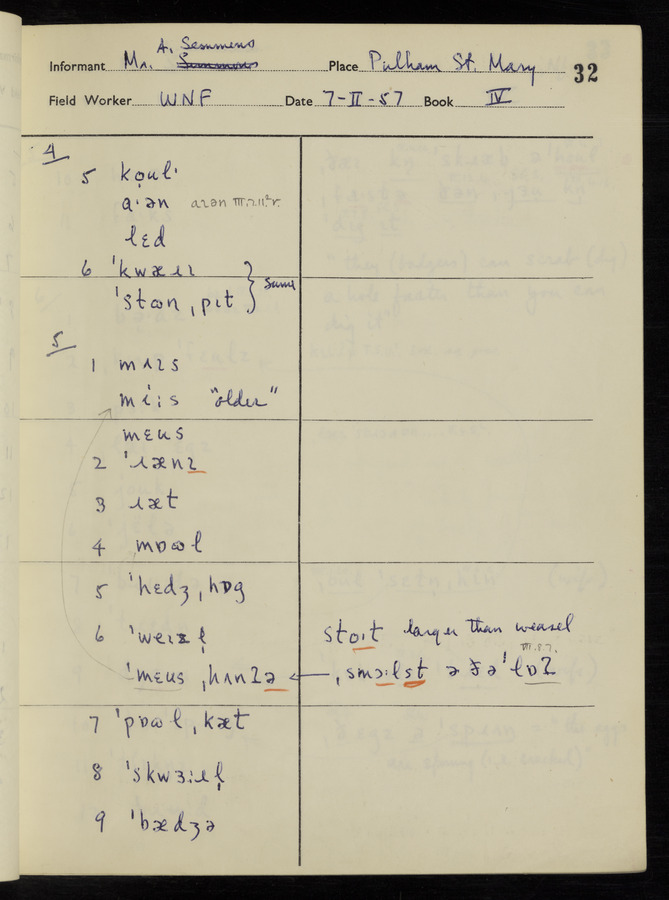 Informant Mr. A. Semmens Place Pulham St. Mary 32
Field Worker WNF Date 7-II-57 Book IV
4
5 ko̩ulˑ
ɑˑən aɪən III.7.11.²r.
lɛd
6 ˈkwæɹɪ } same
ˈstɷn ˌpɪt
5
1 mʌɪs
miːs "older"
mɛʉs
2 ˈɹænɪ
3 ɹæt
4 mɒɷl
5 ˈhɛdʒ ˌhɒg
6 ˈwɛɪzl̩ stɔɪt larger than weasel
III.8.7.
ˈmɛʉs ˌhʌnʔə ← ˌsmɔːlst ə ðəˈlɒʔ
7 ˈpɒɷl ˌkæt
8 ˈskwɜːɹl̩
9 ˈbædʒə